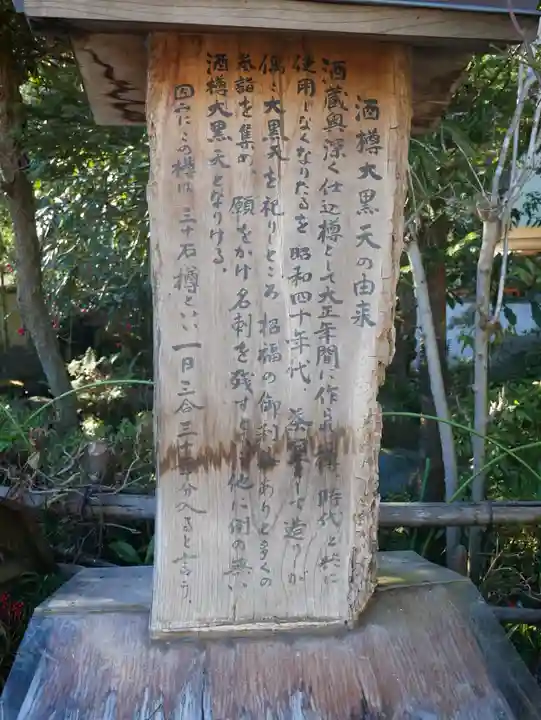 酒樽大黒天の由来
酒蔵奥深く仕込樽として大正年間に作られ 時代と共に
使用しなくなりたるを 昭和四十年代、茶室として造りか
偶々大黒天を祀りしところ 招福の御利益ありと多くの
参詣を集め、願をかけ名刺を残すと 他に例の無い
酒樽大黒天となりける。
因みにこの樽は 三十石樽といい 一日三合三十 分へると言う。